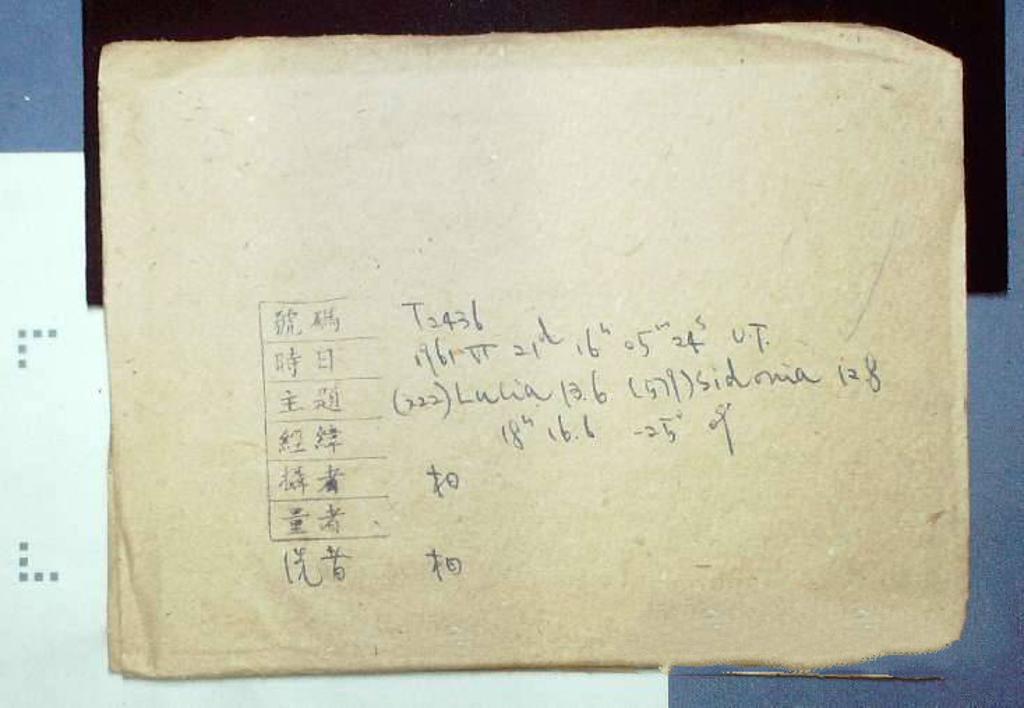 號碼 T2436
時日 1961 VI 21d 16h 05m 24s U.T.
主題 (222) Lucia 13.6 (579) Sidonia 12.8
經緯 18h 16.6 -25°
攝者 相
量者
洗者 相